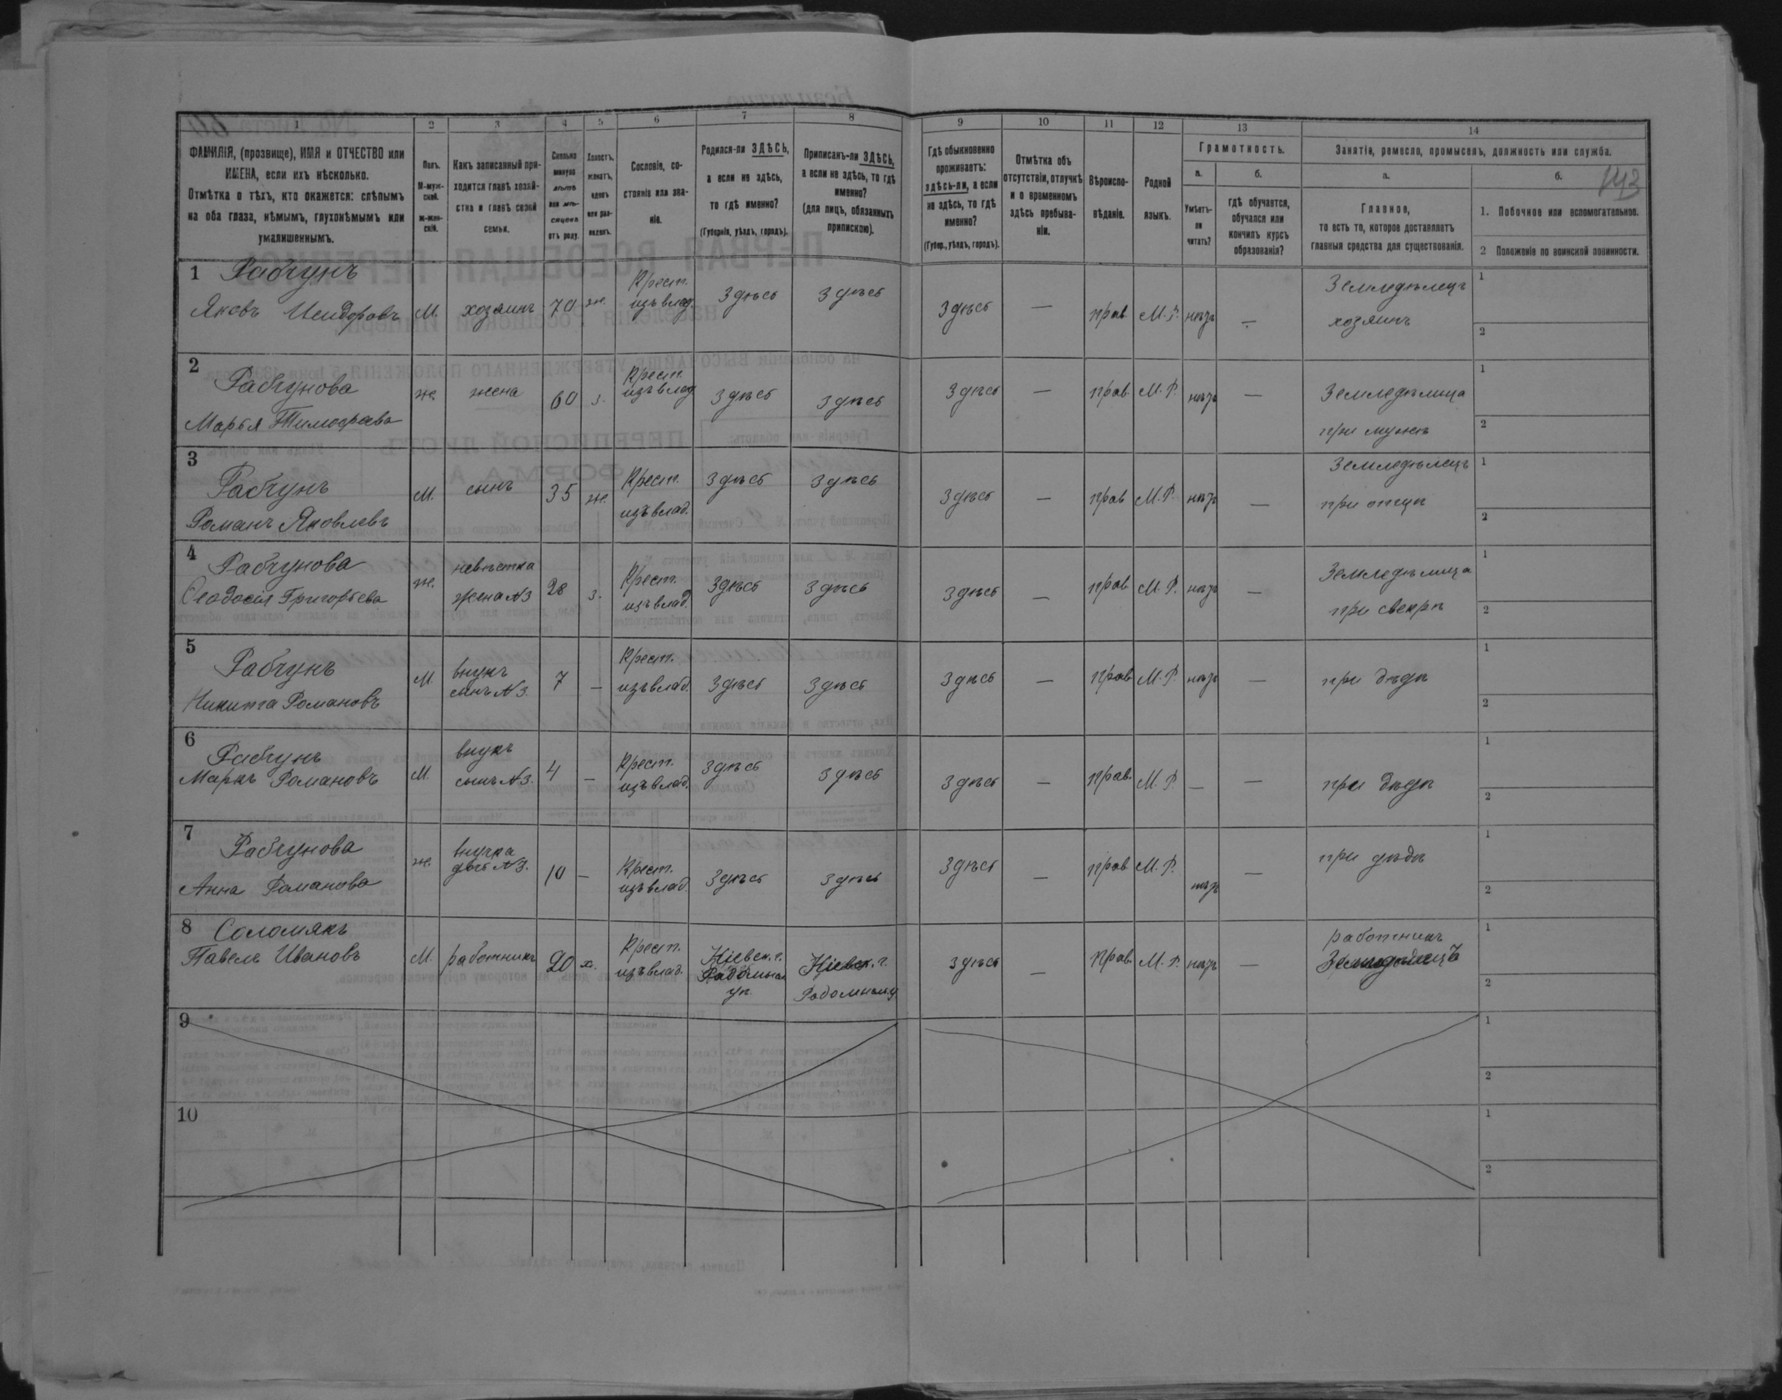 1
2
3
4
5
6
7
8
9
10
11
12
13
14
143
ФАМИЛІЯ, (прозвище), ИМЯ и ОТЧЕСТВО или
ИМЕНА, если ихъ нѣсколько.
Отмѣтка о тѣхъ, кто окажется: слѣпымъ
на оба глаза, нѣмымъ, глухонѣмымъ или
умалишеннымъ.
Полъ.
М-муж-
ской.
Ж-жен-
скій.
Какъ записанный при-
ходится главѣ хозяй-
ства и главѣ своей
семьи.
Сколько
минуло
лѣтъ
или мѣ-
сяцевъ
отъ роду.
Холостъ,
женатъ,
вдовъ
или раз-
веденъ.
Сословіе, со-
стояніе или зва-
ніе.
Родился-ли ЗДѢСЬ,
а если не здѣсь,
то гдѣ именно?
(Губернія, уѣздъ, городъ).
Приписанъ-ли ЗДѢСЬ,
а если не здѣсь, то гдѣ
именно?
(для лицъ, обязанныхъ
припискою).
Гдѣ обыкновенно
проживаетъ:
здѣсь-ли, а если
не здѣсь, то гдѣ
именно?
(Губер., уѣздъ, городъ).
Отмѣтка объ
отсутствіи, отлучкѣ
и о временномъ
здѣсь пребыва-
ніи.
Вѣроиспо-
вѣданіе.
Родной
языкъ.
Грамотность.
а.
Умѣетъ-
ли
читать?
б.
гдѣ обучается,
обучался или
кончилъ курсъ
образованія?
Занятіе, ремесло, промыселъ, должность или служба.
а.
Главное,
то есть то, которое доставляетъ
главныя средства для существованія.
б.
1. Побочное или вспомогательное.
2 Положеніе по воинской повинности.
1 Рабчунъ
Яковъ Исидоровъ М. хозяинъ 70 ж. Крест. изъ влад. Здѣсь Здѣсь Здѣсь — прав. М.Р. нѣтъ — Земледѣлецъ
хозяинъ
1
2
2 Рабчунова
Марья Тимофеева ж. жена 60 з. Крест. изъ влад. Здѣсь Здѣсь Здѣсь — прав. М.Р. нѣтъ — Земледѣлица
при мужѣ
1
2
3 Рабчунъ
Романъ Яковлевъ М. сынъ 35 ж. Крест. изъ влад. Здѣсь Здѣсь Здѣсь — прав. М.Р. нѣтъ — Земледѣлецъ
при отцѣ
1
2
4 Рабчунова
Ѳеодосія Григорьева ж. невѣстка жена №3 28 з. Крест. изъ влад. Здѣсь Здѣсь Здѣсь — прав. М.Р. нѣтъ — Земледѣлица
при свекрѣ
1
2
5 Рабчунъ
Никита Романовъ М внукъ сынъ №3. 7 — Крест. изъ влад. Здѣсь Здѣсь Здѣсь — прав. М.Р. нѣтъ — при дѣдѣ
1
2
6 Рабчунъ
Маркъ Романовъ М. внукъ сынъ №3. 4 — Крест. изъ влад. Здѣсь Здѣсь Здѣсь — прав. М.Р. — — при дѣдѣ
1
2
7 Рабчунова
Анна Романова ж. внучка дочь №3. 10 — Крест. изъ влад. Здѣсь Здѣсь Здѣсь — прав. М.Р. нѣтъ — при дѣдѣ
1
2
8 Соломякъ
Павелъ Ивановъ М. работникъ 20 х. Крест. изъ влад. Кіевск. г. Радомысл. уѣ. Кіевск. г. Радомысл. у Здѣсь — прав. М.Р. нѣтъ — работникъ
1
2
9
1
2
10
1
2